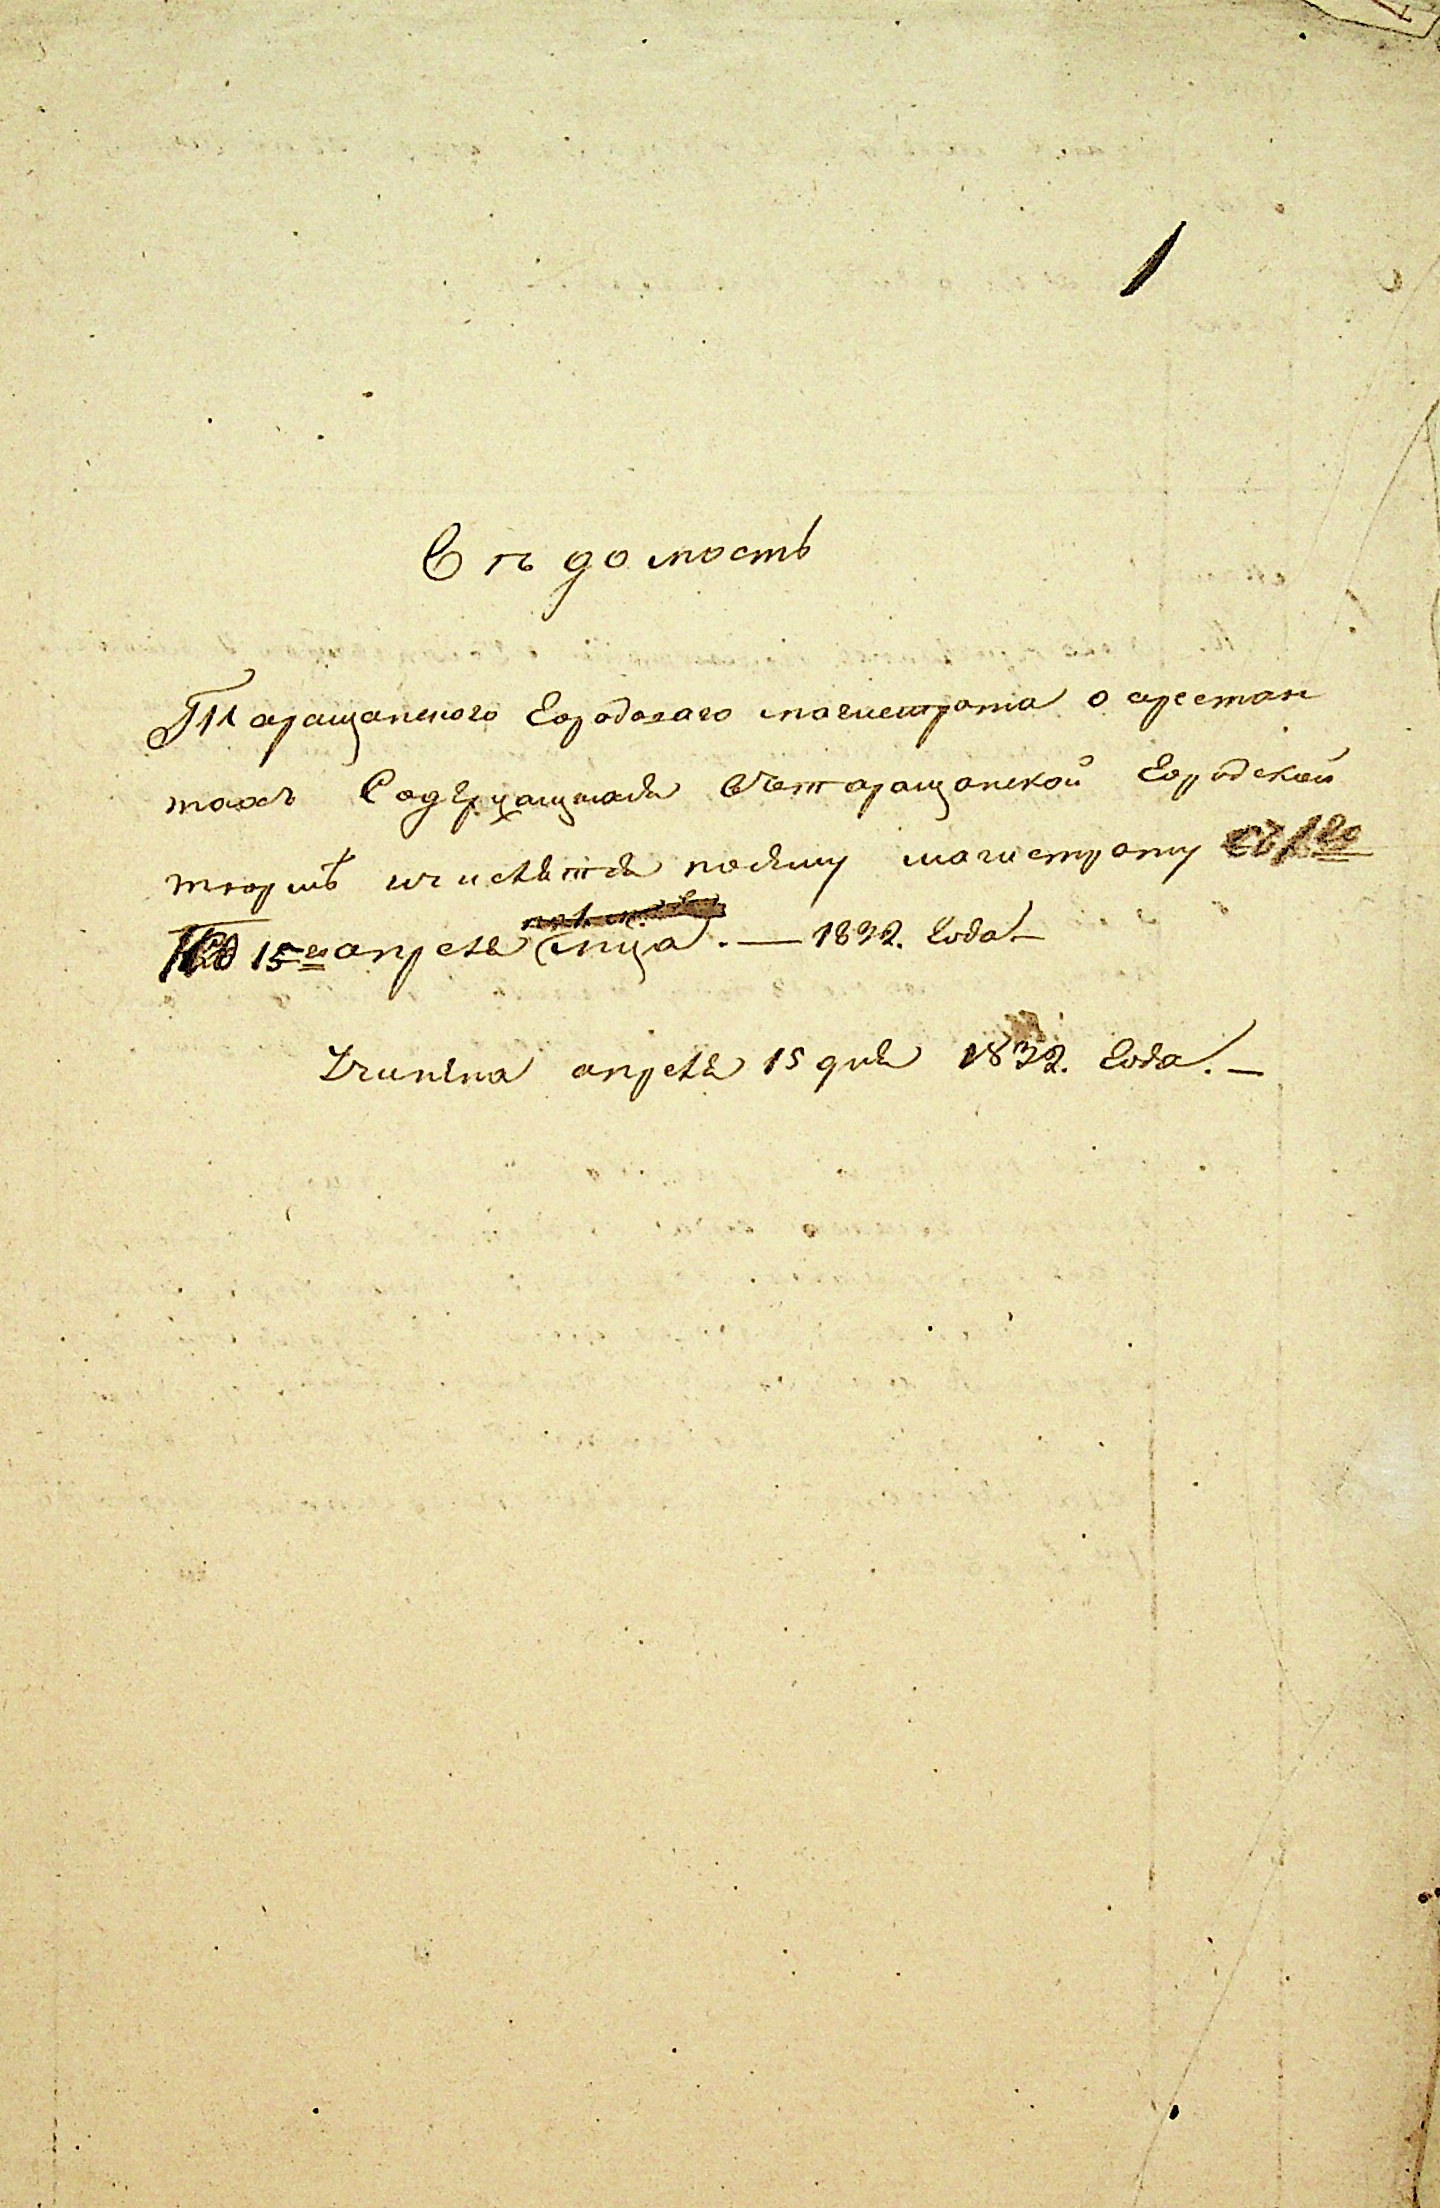 1
Вѣдомость
Таращанского Городоваго магистрата о арестан
тахъ Содержащихся въ таращанской Городской
тюрмѣ числятся посему магистрату
15го апреля мца. — 1832. Года —
апреля 15 дня 1832. Года. —